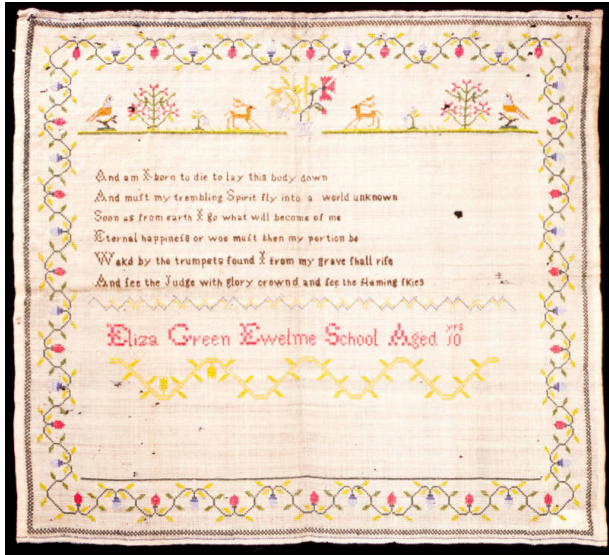 And am I born to die to lay this body down
And muſt my trembling Spirit fly into a world unknown
Soon as from earth I go what will become of me
Eternal happineſs or woe muſt then my portion be
Wakd by the trumpets ſound I from my grave ſhall riſe
And ſee the Judge with glory crownd and ſee the flaming ſkies
Eliza Green Ewelme School Aged 10 yrs